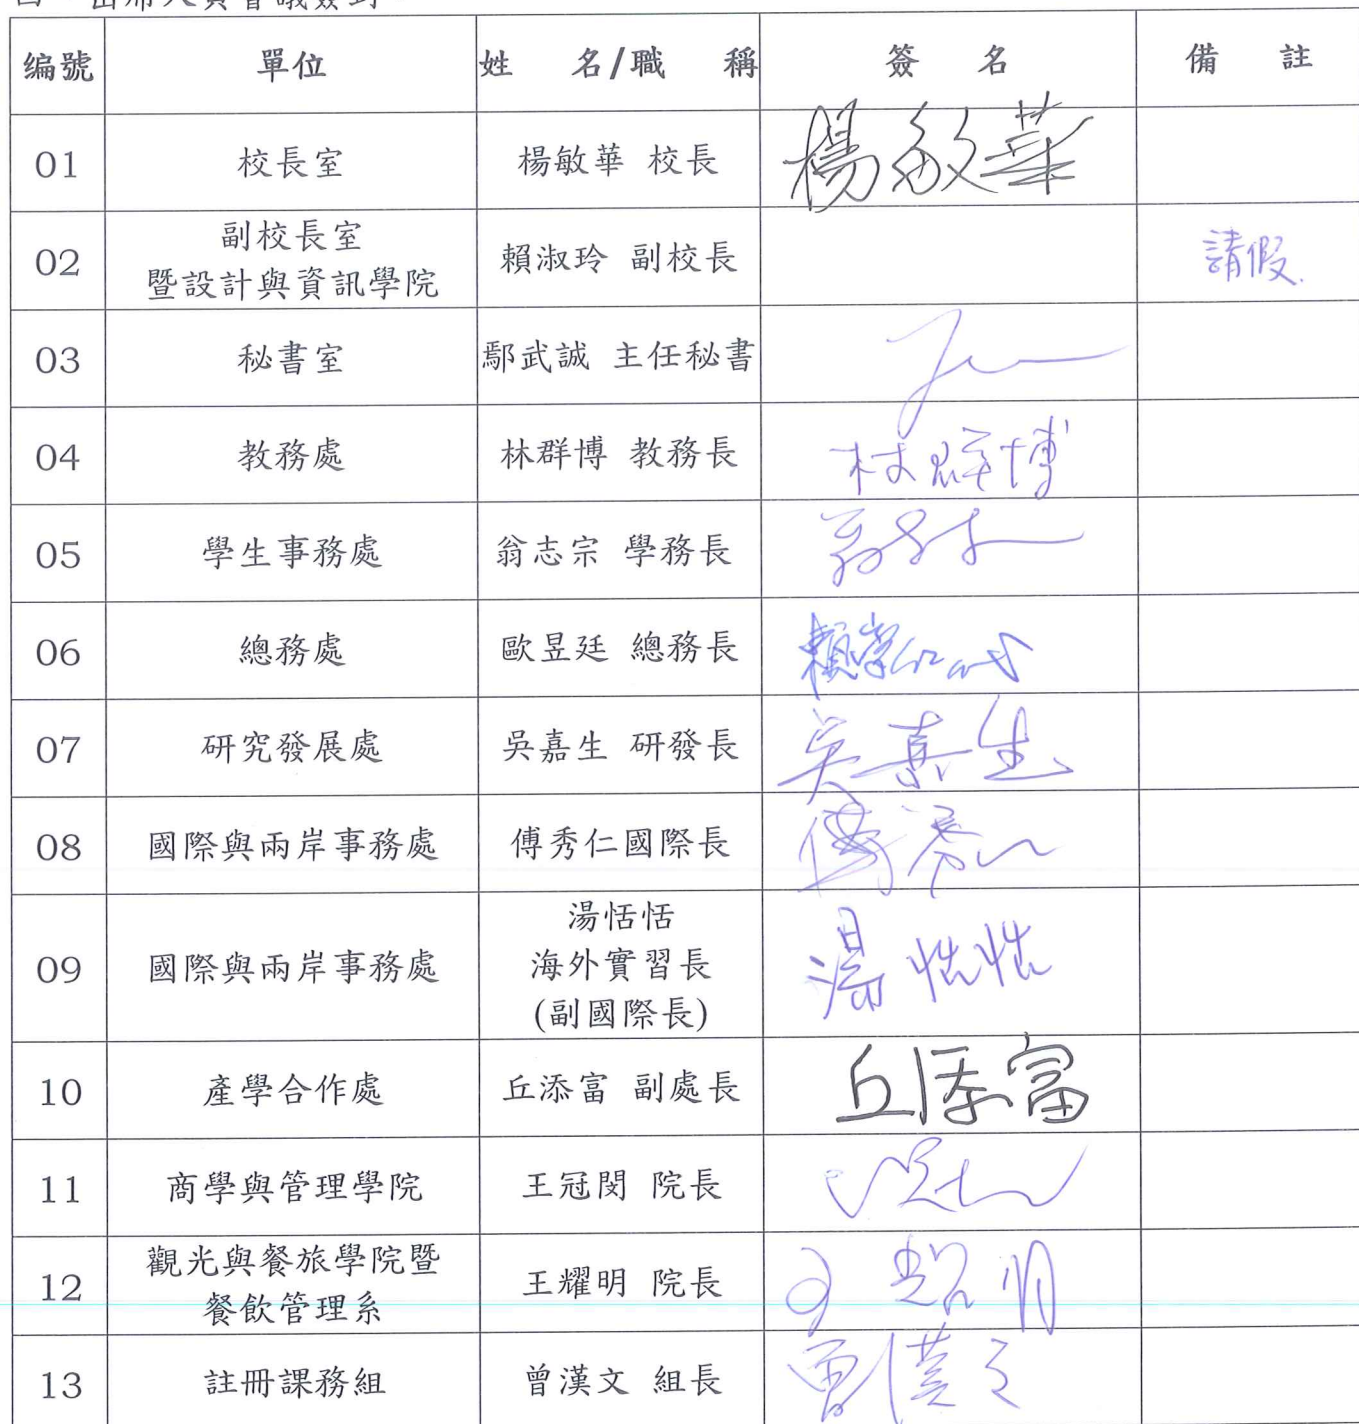 編號 單位 姓 名/職 稱 簽 名 備 註
01 校長室 楊敏華 校長 楊敏華
02 副校長室 賴淑玲 副校長 請假.
暨設計與資訊學院
03 秘書室 鄢武誠 主任秘書
04 教務處 林群博 教務長 林群博
05 學生事務處 翁志宗 學務長
06 總務處 歐昱廷 總務長
07 研究發展處 吳嘉生 研發長 吳嘉生
08 國際與兩岸事務處 傅秀仁國際長
09 國際與兩岸事務處 湯恬恬 湯恬恬
海外實習長
(副國際長)
10 產學合作處 丘添富 副處長 丘添富
11 商學與管理學院 王冠閔 院長
12 觀光與餐旅學院暨 王耀明 院長
餐飲管理系
13 註冊課務組 曾漢文 組長 曾漢文